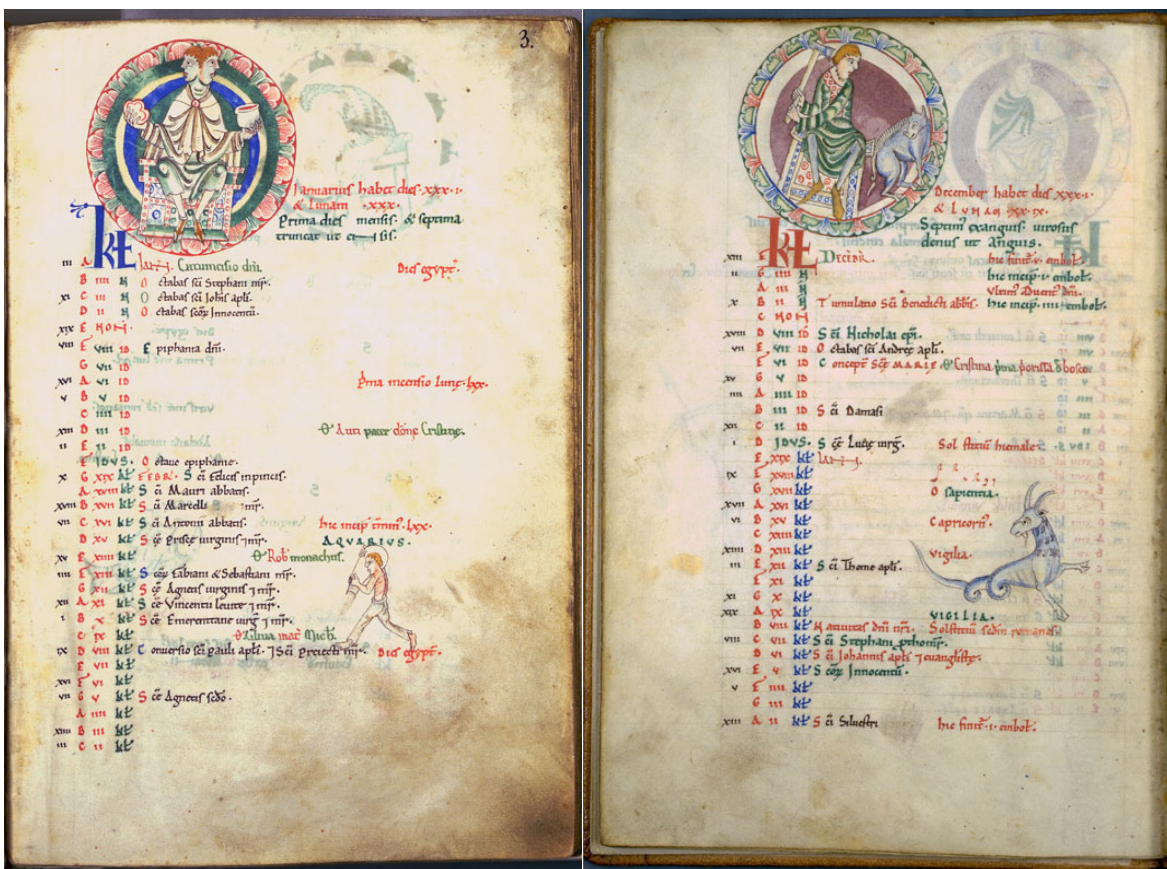 3.
Januarius habet dies .xxx.i.
& lunam .xxx.
Prima dies mensis & septima
truncat ut ensis.
KL
iii A IANR. Circumcisio dni. Dies egypt.
B iiii N Octabas sci Stephani mr.
xi C iii N Octabas sci Johis apli.
D ii N Octabas scoр Innocentū.
xix E NON.
viii F viii ID Epiphania dni.
G vii ID
xvi A vi ID Prima incensio lunę .lxx.
v B v ID
C iiii ID
xiii D iii ID O Auti pater dōne Cristine.
ii E ii ID
F IDVS. Octave epiphanie.
x G xix kł FEBR. S ci Felicis inpincis.
A xviii kł S ci Mauri abbatis.
xviii B xvii kł S ci Marcelli mr.
vii C xvi kł S ci Antonii abbatis. hic incip tmin. lxx.
D xv kł S cę Prisce virginis 7 mr. AQVARIVS.
xv E xiiii kł O Rob monachus.
iiii F xiii kł S coр Fabiani & Sebastiani mr.
G xii kł S cę Agnetis virginis 7 mr.
xii A xi kł S ci Vincentii levite 7 mr.
i B x kł S cę Emerentiane virg 7 mr.
C ix kł mat Mich.
ix D viii kł Conversio sci Pauli apli. 7 Sci Preiecti mr. Dies egypt.
E vii kł
xvii F vi kł
vi G v kł S cę Agnetis scdo.
A iiii kł
xiiii B iii kł
iii C ii kł
December habet dies .xxx.i.
& LUNAM XX.IX.
Septim exanguis. virosus
denus ut Anguis.
KL
xiii F DECEBR. hic finit .v. embol.
ii G iiii N hic incip .v. embol.
A iii N Vltim Advent Dni.
x B ii N Tumulatio Sci Benedicti abbis. hic incip .iii. embol.
C NON
xviii D viii ID S ci Nicholai epi.
vii E vii ID Octabas sci Andreę apli.
F vi ID Concept Scę MARIE. O Cristina prima priorissa d bosco
xv G v ID
iiii A iiii ID
B iii ID S ci Damasi
xii C ii ID
i D IDVS. S cę Lucię virg. Solstitiu hiemale.
E xix kł IANR.
ix F xviii kł
G xvii kł O sapientia.
xvii A xvi kł
vi B xv kł Capricorn.
C xiiii kł
xiiii D xiii kł Vigilia.
iii E xii kł S ci Thome apli.
F xi kł
xi G x kł
xix A ix kł VIGILIA.
B viii kł Nativitas dni nri. Solstitiu scdm romanos.
viii C vii kł S ci Stephani prothomr.
D vi kł S ci Johannis apli 7 evangliste.
xvi E v kł S coр Innocentū
v F iiii kł
G iii kł
xiii A ii kł S ci Silvestri hic finit .i. embol.